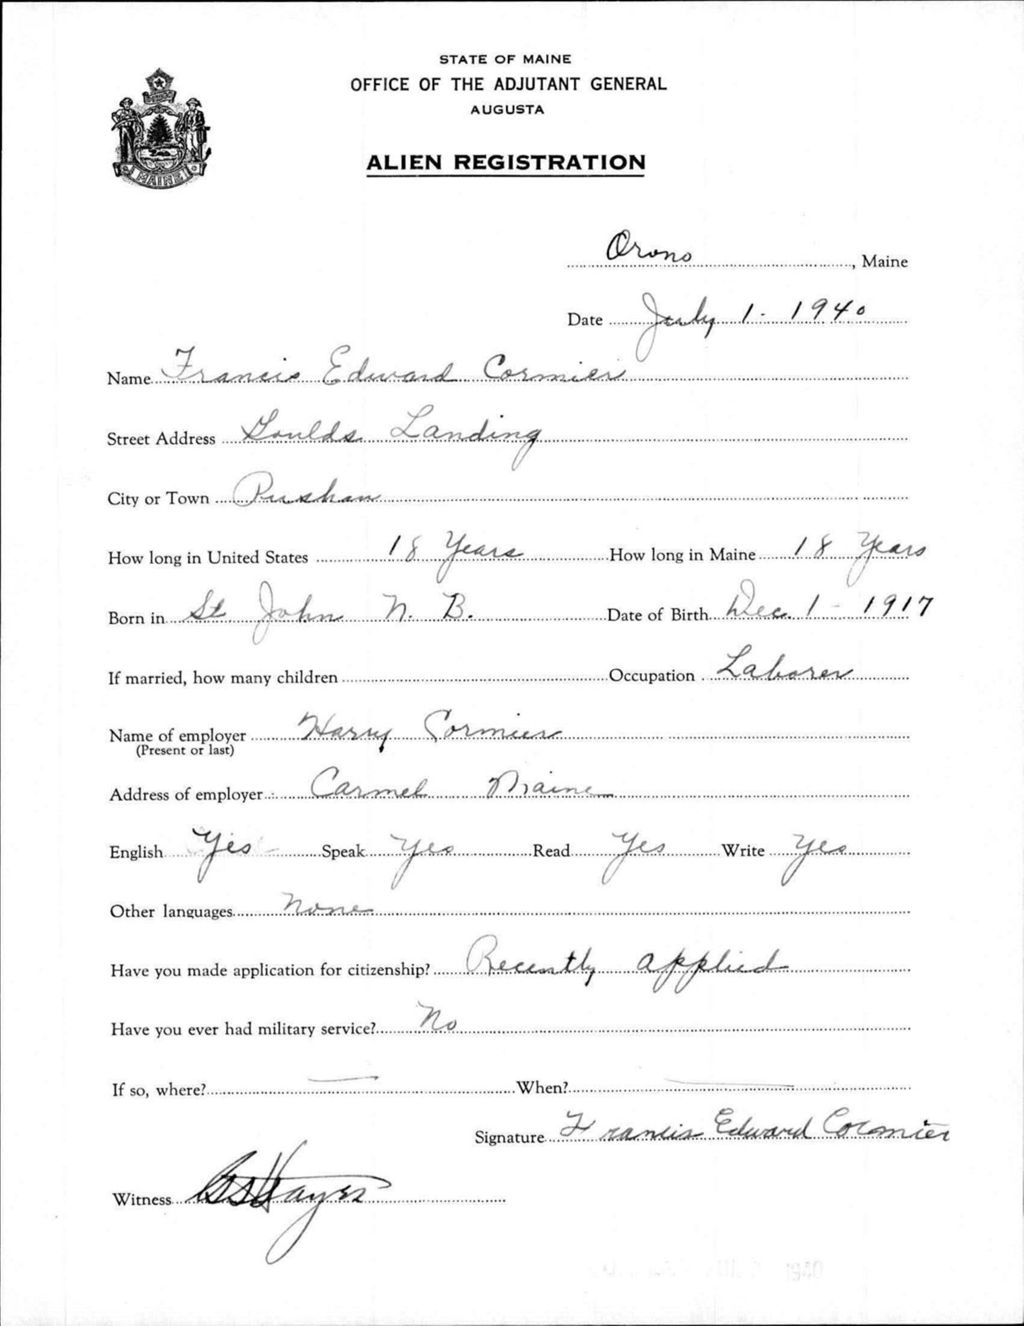 STATE OF MAINE
OFFICE OF THE ADJUTANT GENERAL
AUGUSTA
MAINE
ALIEN REGISTRATION
Orono, Maine
Date July 1 - 1940
Name Francis Edward Cormier
Street Address Goulds Landing
City or Town Pushaw
How long in United States 18 Years How long in Maine 18 Years
Born in St John N. B. Date of Birth Dec. 1 - 1917
If married, how many children Occupation Laborer
Name of employer Harry Cormier
(Present or last)
Address of employer Carmel Maine
English Yes Speak Yes Read Yes Write Yes
Other languages None
Have you made application for citizenship? Recently applied
Have you ever had military service? No
If so, where? — When? —
Signature Francis Edward Cormier
Witness Hayes
1940